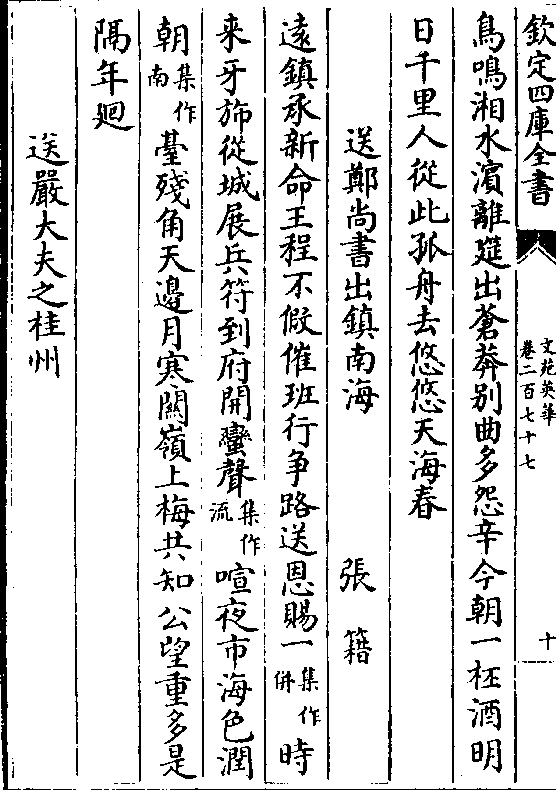 欽定四庫全書
文苑英華
卷二百七十七
十
鳥鳴湘水濱離筵出蒼莽别曲多怨辛今朝一杯酒明
日千里人從此孤舟去悠悠天海春
送鄭尚書出鎮南海
張籍
遠鎮承新命王程不假催班行争路送恩賜一集作併時
來牙斾從城展兵符到府開蠻聲集作流喧夜市海色潤
朝集作南臺殘角天邊月寒關嶺上梅共知公望重多是
隔年廻
送嚴大夫之桂州